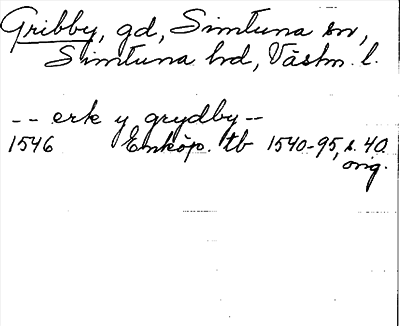 Gribby, gd, Simtuna sn,
Simtuna hd, Västm. l.
-- erk y grydby --
1546 Enköp. tb 1540-95, s. 40
orig.